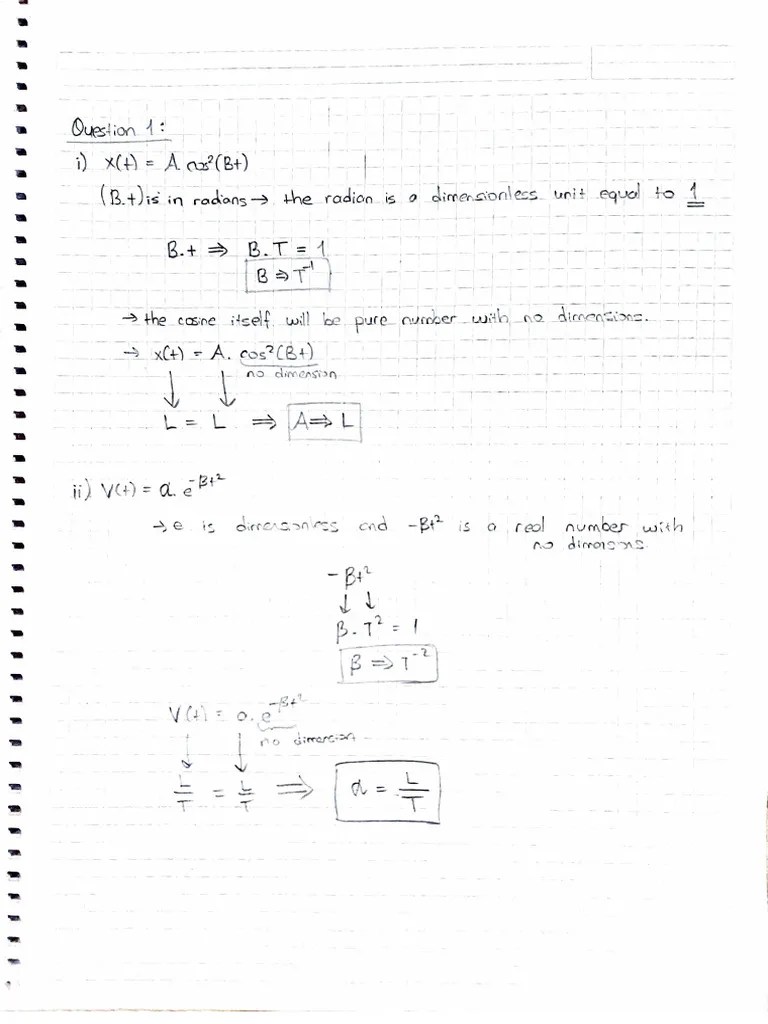 Question 1:
i) x(t) = A. cos²(Bt)
(B.t) is in radians → the radian is a dimensionless unit equal to 1
B.t ⇒ B.T = 1
B ⇒ T⁻¹
→ the cosine itself will be pure number with no dimensions.
→ x(t) = A. cos²(Bt)
no dimension
L = L ⇒ A ⇒ L
ii) V(t) = α. e^-βt²
→ e is dimensionless and -βt² is a real number with
no dimensions.
-βt²
↓ ↓
β. T² = 1
β ⇒ T⁻²
V(t) = α. e^-βt²
no dimension
L/T = L/T ⇒ α = L/T